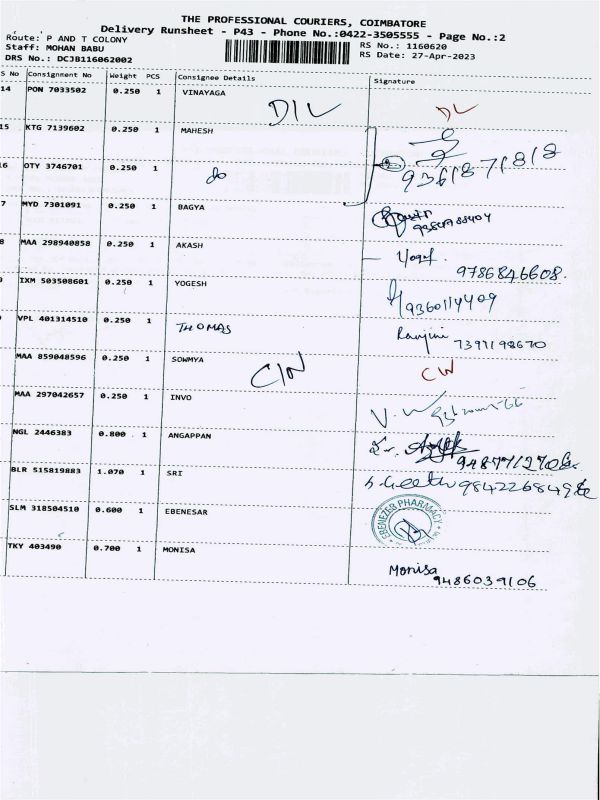 THE PROFESSIONAL COURIERS, COIMBATORE
Delivery Runsheet - P43 - Phone No.:0422-3505555 - Page No.:2
Route: P AND T COLONY
Staff: MOHAN BABU
RS No.: 1160620
DRS No.: DCJB116062002
RS Date: 27-Apr-2023
S No Consignment No Weight PCS Consignee Details Signature
14 PON 7033502 0.250 1 VINAYAGA
D/L DL
15 KTG 7139602 0.250 1 MAHESH
16 OTY 3746701 0.250 1 do 9361871818
7 MYD 7301091 0.250 1 BAGYA
8 MAA 298940858 0.250 1 AKASH
9786846608.
IXM 503508601 0.250 1 YOGESH 9360114409
VPL 401314510 0.250 1 THOMAS Ranjini 7397198670
MAA 859048596 0.250 1 SOWMYA
C/N C/N
MAA 297042657 0.250 1 INVO
NGL 2446383 0.800 1 ANGAPPAN
BLR 515819883 1.070 1 SRI S. Geetha
SLM 318504510 0.600 1 EBENESAR EBENEZER PHARMACY
TKY 403490 0.700 1 MONISA
Monisa 9486039106